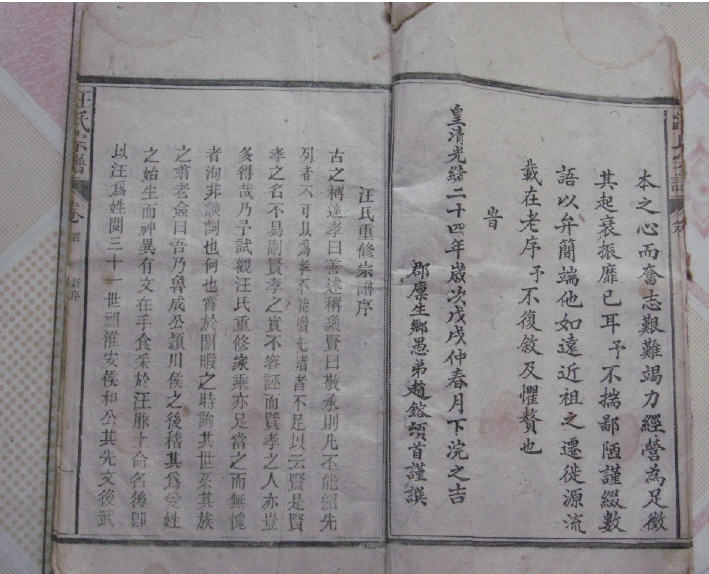 本之心而奮志艱難竭力經營為足徵
其起衰振靡已耳予不揣鄙陋謹綴數
語以弁簡端他如遠近祖之遷徙源流
載在老序予不復敘及懼贅也
旹
皇清光緒二十四年歲次戊戌仲春月下浣之吉
郡廩生鄉愚弟趙鎔頓首謹譔
汪氏重修宗譜序
古之稱達孝曰善述稱象賢曰敬承則凡不能紹先
列者不可以為孝不能紹先緒者不足以云賢是賢
孝之名不易副賢孝之實不容誣而賢孝之人亦豈
多得哉乃予試觀汪氏重修家乘亦足當之而無愧
者洵非諛詞也何也嘗於閒暇之時詢其世系其族
之翁老僉曰吾乃魯成公潁川侯之後稽其為受姓
之始生而神異有文在手食采於汪脉士命名後即
以汪為姓閱三十一世祖淮安侯和公其先文後武
汪氏宗譜
卷首
新序